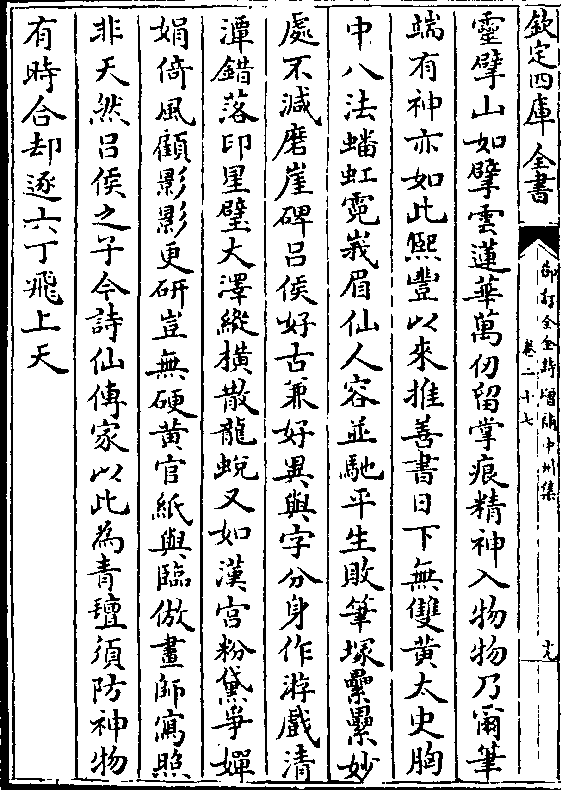 欽定四庫全書
御訂全金詩增補中州集
卷二十七
十九
靈擘山如擘雲蓮華萬仞留掌痕精神入物物乃爾筆
端有神亦如此熙豐以來推善書日下無雙黄太史胸
中八法蟠虹霓峩眉仙人容並馳平生敗筆塚纍纍妙
處不減磨崖碑吕侯好古兼好異與字分身作游戲清
潭錯落印星壁大澤縱横散龍蛻又如漢宫粉黛爭嬋
娟倚風顧影影更研豈無硬黄官紙與臨倣畫師寫照
非天然吕侯之子今詩仙傳家以此為青氊須防神物
有時合却逐六丁飛上天